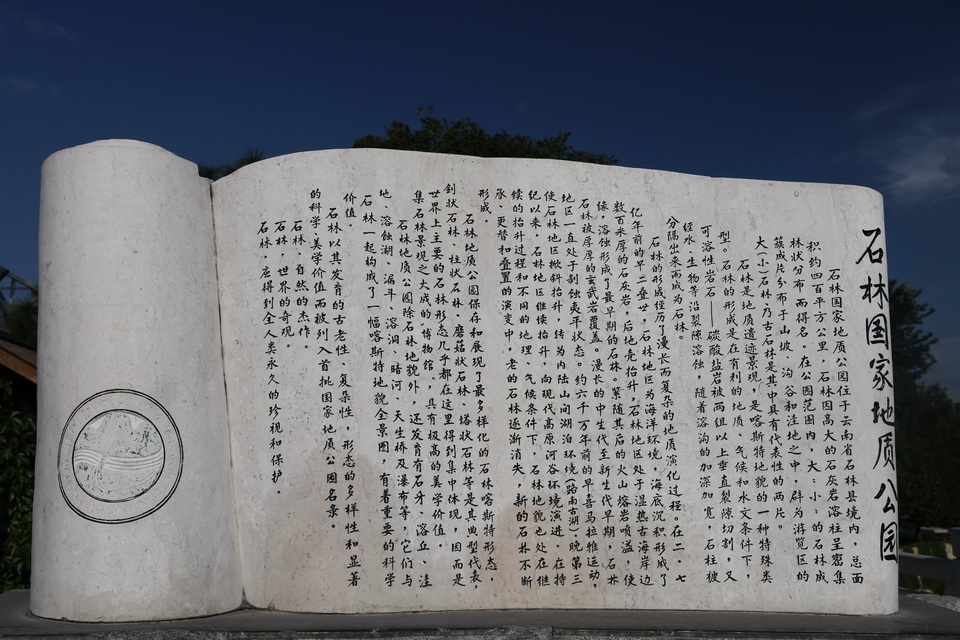 石林国家地质公园
石林国家地质公园位于云南省石林县境内，总面
积约四百平方公里，石林因高大的石灰岩溶柱呈密集
林状分布而得名，在公园范围内，大、小、的石林成
簇成片分布于山坡、沟谷和洼地之中，辟为游览区的
大(小)石林、乃古石林是其中具有代表性的两片。
石林是地质遗迹景观，是喀斯特地貌的一种特殊类
型。石林的形成是在有利的地质、气候和水文条件下，
可溶性岩石——碳酸盐岩被两组以上垂直裂隙切割，又
经水、生物等沿裂隙溶蚀，随着溶沟的加深加宽，石柱被
分隔出来而成为石林。
石林的形成经历了漫长而复杂的地质演化过程。在二，七
亿年前的早二叠世，石林地区为海洋环境，海底沉积形成了
数百米厚的石灰岩，后地壳抬升，石林地区处于湿热古海岸边
缘，溶蚀形成了最早期的石林。紧随其后的火山熔岩喷溢，使
石林被厚厚的玄武岩覆盖。漫长的中生代至新生代早期，石林
地区一直处于剥蚀夷平状态。约六千万年前的早喜马拉雅运动，
使石林地区掀斜抬升，转为内陆山间湖泊环境(路南古湖)。晚第三
纪以来，石林地区继续抬升，向现代高原河谷环境演进，在持
续的抬升过程和不同的地理、气候条件下，石林地貌也处在继
承、更替和叠置的演变中，老的石林逐渐消失，新的石林不断
形成。
石林地质公园保存和展现了最多样化的石林喀斯特形态，
剑状石林、柱状石林、蘑菇状石林、塔状石林等是其典型代表，
世界上主要的石林形态几乎都在这里得到集中体现，因而是
集石林景观之大成的“博物馆”，具有极高的美学价值，
石林地质公园除石林地貌外，还发育有石牙、溶丘、洼
地、溶蚀湖、漏斗、溶洞、暗河、天生桥及瀑布等，它们与
石林一起构成了一幅喀斯特地貌全景图，有着重要的科学
价值。
石林以其发育的古老性、复杂性，形态的多样性和显著
的科学、美学价值而被列入首批国家地质公园名录。
石林，自然的杰作，
石林，世界的奇观，
石林，应得到全人类永久的珍视和保护。